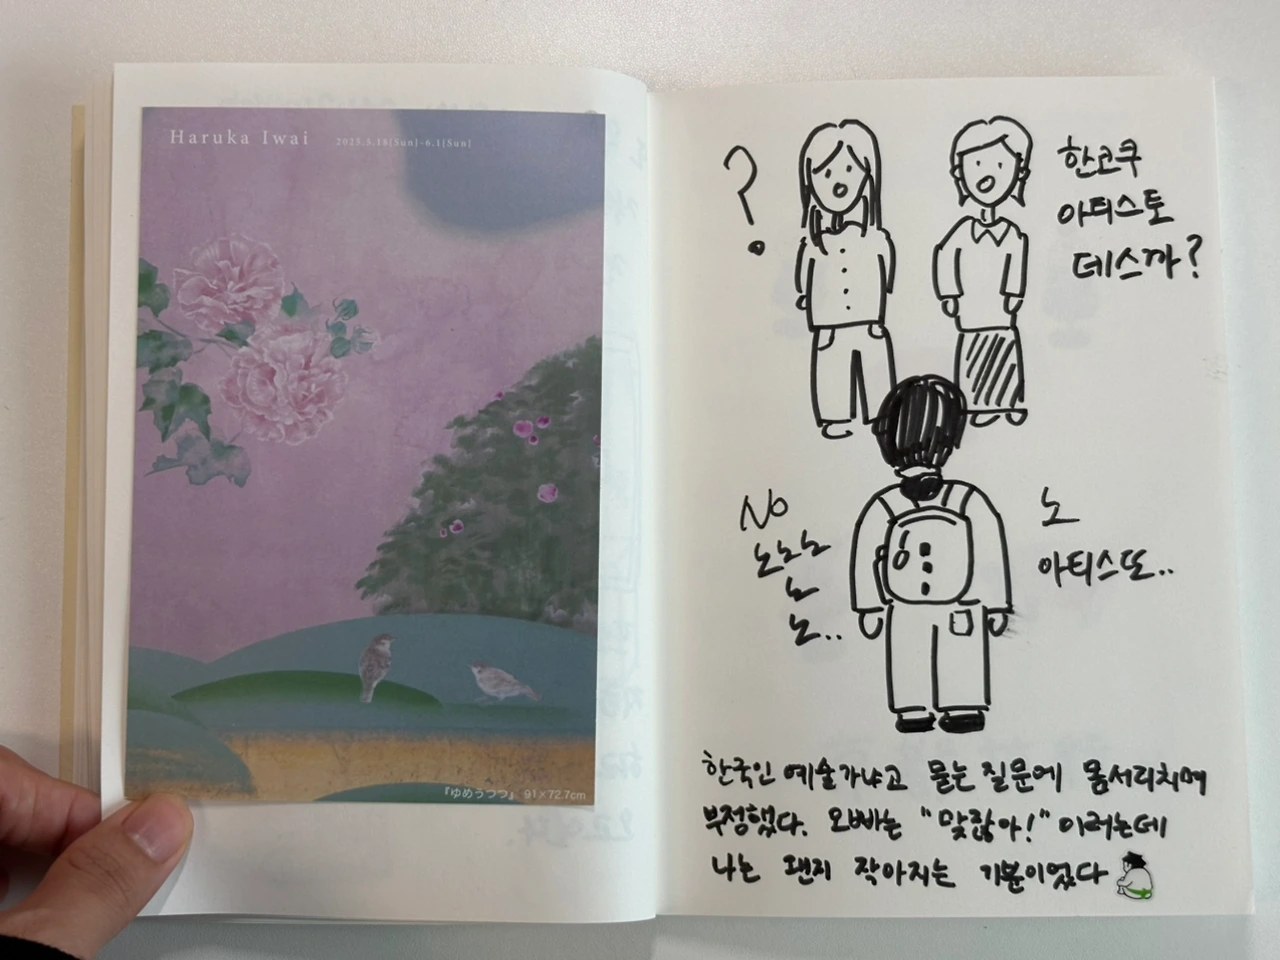 Haruka Iwai
2025.5.18[Sun]-6.1[Sun]
『ゆめうつつ』 91×72.7cm
?
한코쿠
아티스토
데스까?
No
노노노
노
노..
노
아티스또..
한국인 예술가냐고 묻는 질문에 몸서리치며
부정했다. 오빠는 "맞잖아!" 이러는데
나는 왠지 작아지는 기분이었다